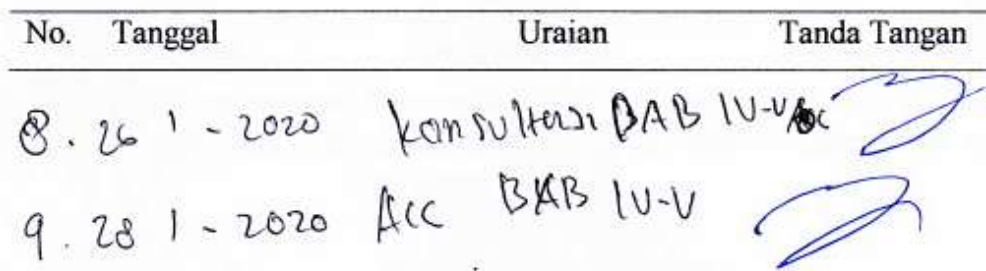 No. Tanggal Uraian Tanda Tangan
8. 26 1 - 2020 Konsultasi BAB IV-V
9. 28 1 - 2020 Acc BAB IV-V